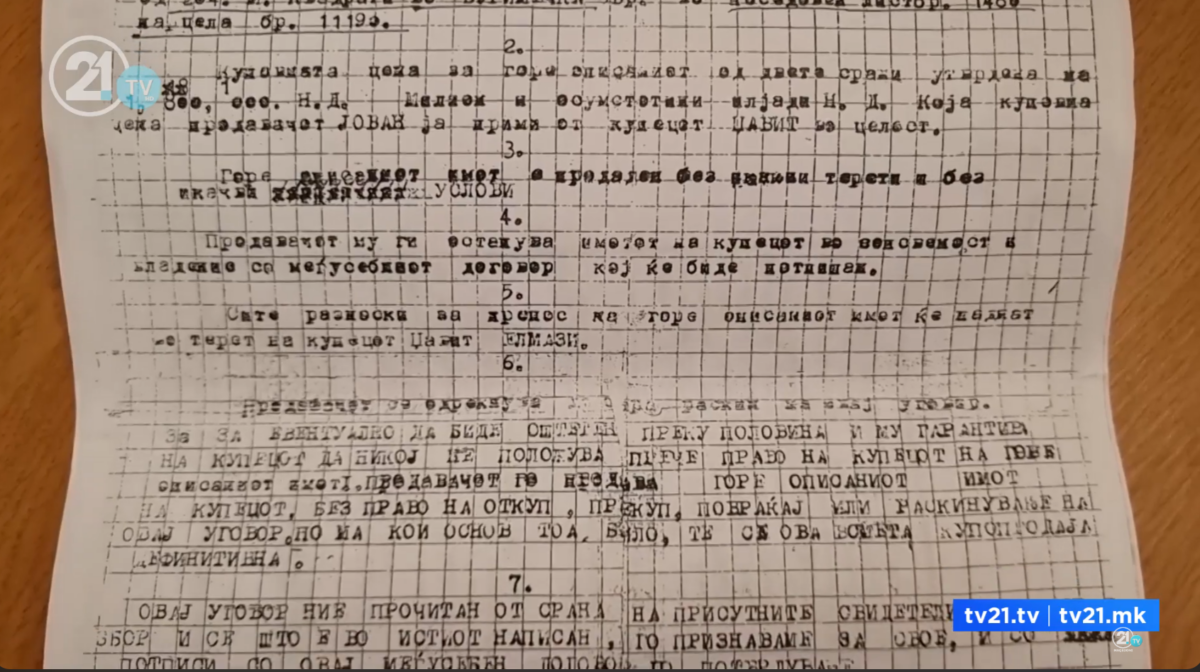 парцела бр. 11193.
2.
21 TV
Куповната цена за горе описаниот од двете срани утврдена на
1, 800, ооо. Н.Д. Милион и осумстотини илјади Н. Д. Која куповна
цена продавачот ЈОВАН ја прими от купецот ЏАВИТ во целост.
3.
Горе описаниот имот е продаден без никакви терети и без
икакви УСЛОВИ
4.
Продавачот му ги остапува имотот на купецот во
владение со меѓусебниот договор кој ќе биде потпишан.
5.
Сите разноски за пренос на горе описаниот имот ќе паднат
терет на купецот Џавит ЕЛМАЗИ.
6.
Продавачот се одрекнува раскин на овај уговор.
За ЗА ЕВЕНТУАЛНО ДА БИДЕ ОШТЕТЕН ПРЕКУ ПОЛОВИНА И МУ ГАРАНТИРА
НА КУПЕЦОТ ДА НИКОЈ НЕ ПОЛОЖУВА ПРАВО НА КУПЕЦОТ НА ГОРЕ
описаниот имот. ПРЕДАВАЧОТ ГО ПРЕДАВА ГОРЕ ОПИСАНИОТ ИМОТ
НА КУПЕЦОТ, БЕЗ ПРАВО НА ОТКУП, ПРЕКУП, ПОВРАЌАЈ ИЛИ РАСКИНУВАЊЕ НА
ОВАЈ УГОВОР, ПО МА КОИ ОСНОВ ТОА, БИЛО, ТЕ СЕ ОВА КУПОПРОДАЈА
ДЕФИНИТИВНА.
7.
ОВАЈ УГОВОР НИЕ ПРОЧИТАН ОТ СРАНА НА ПРИСУТНИТЕ СВИДЕТЕЛИ
tv21.tv | tv21.mk
ЗБОР И СЕ ШТО Е ВО ИСТИОТ НАПИСАН, ГО ПРИЗНАВАМЕ ЗА СВОЕ, И СО
21 TV
ПОТПИСИ СО ОВАЈ МЕЃУСЕБЕН ДОГОВОР ГО ПОТВРДУВАМЕ